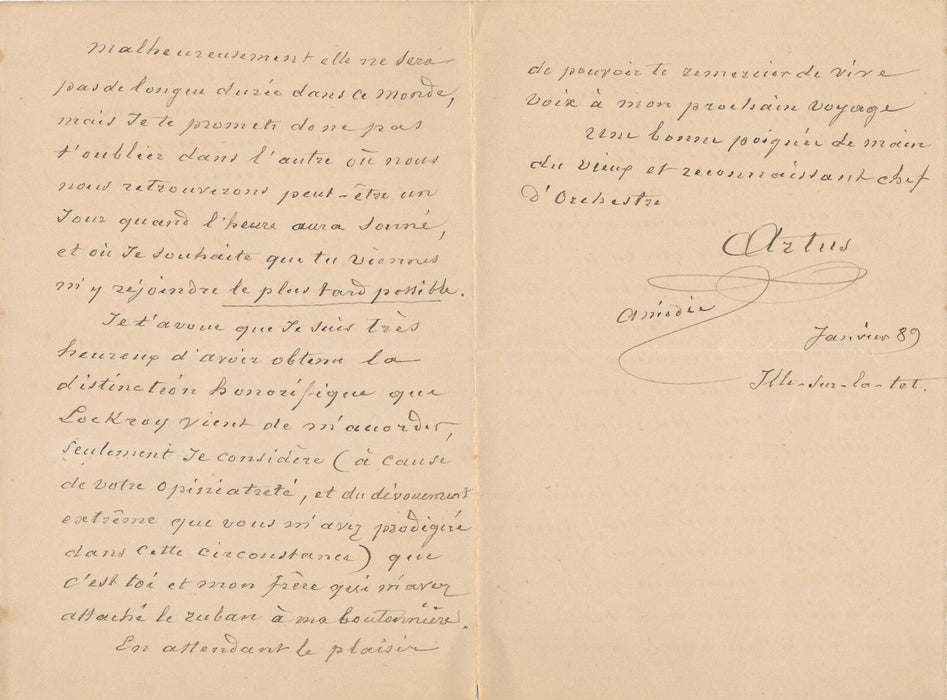 malheureusement elle ne sera
pas de longue durée dans ce monde,
mais Je te promets donc pas
t'oublier dans l'autre où nous
nous retrouverons peut-être un
Jour quand l'heure aura sonné,
et où Je souhaite que tu viennes
m'y rejoindre le plus tard possible.
Je t'avoue que Je suis très
heureux d'avoir obtenu la
distinction honorifique que
Lockroy vient de m'accorder,
seulement Je considère (à cause
de votre opiniatreté, et du dévouement
extrême que vous m'avez prodigué
dans cette circonstance) que
c'est toi et mon frère qui m'avez
attaché le ruban à ma boutonnière.
En attendant le plaisir
de pouvoir te remercier de vive
voix à mon prochain voyage
Une bonne poignée de main
du vieux et reconnaissant chef
D'Orchestre
Artus
Amédée
Janvier 89
Ille-sur-la-tet.